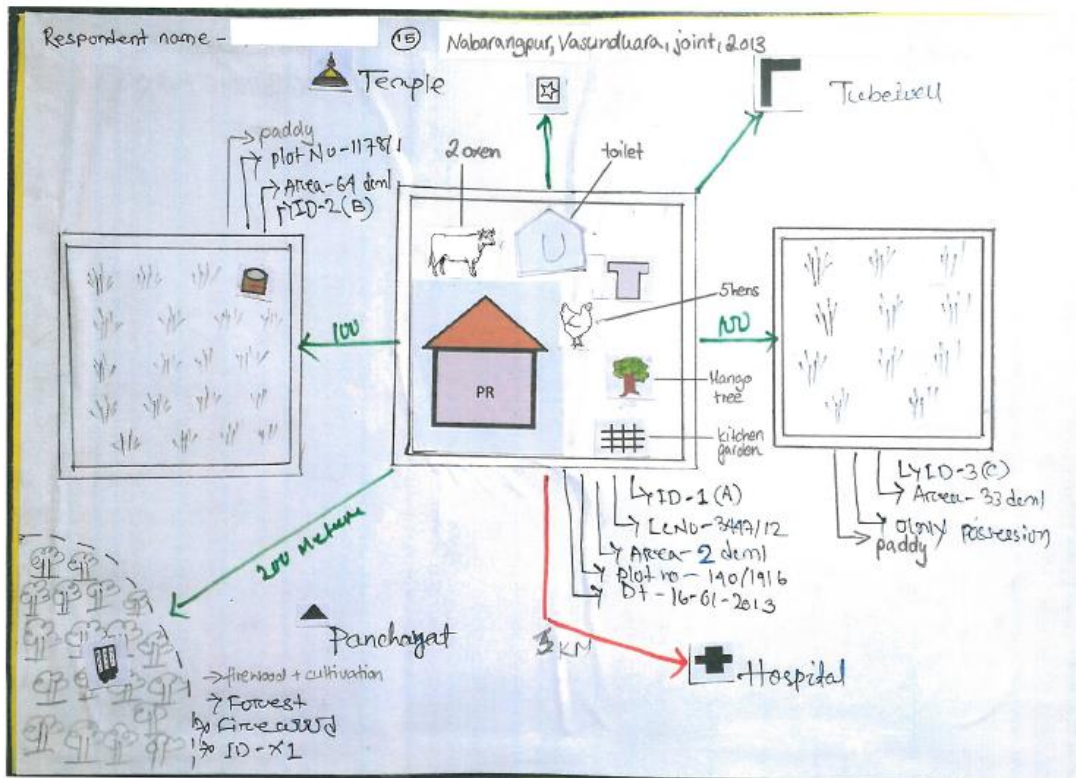 Respondent name -
15
Nabarangpur, Vasundhara, joint, 2013
Temple
Tubewell
paddy
plot No - 1178/1
Area - 64 deml
ID-2 (B)
2 oxen
toilet
5 hens
100
100
PR
Mango
tree
kitchen
garden
ID-1 (A)
LC No - 3447/12
Area - 2 deml
Plot no - 140/1916
Dt - 16-01-2013
ID-3 (C)
Area - 33 deml
Only possession
paddy
200 Meture
Panchayat
KM
Hospital
firewood + cultivation
Forrest
ID - X1